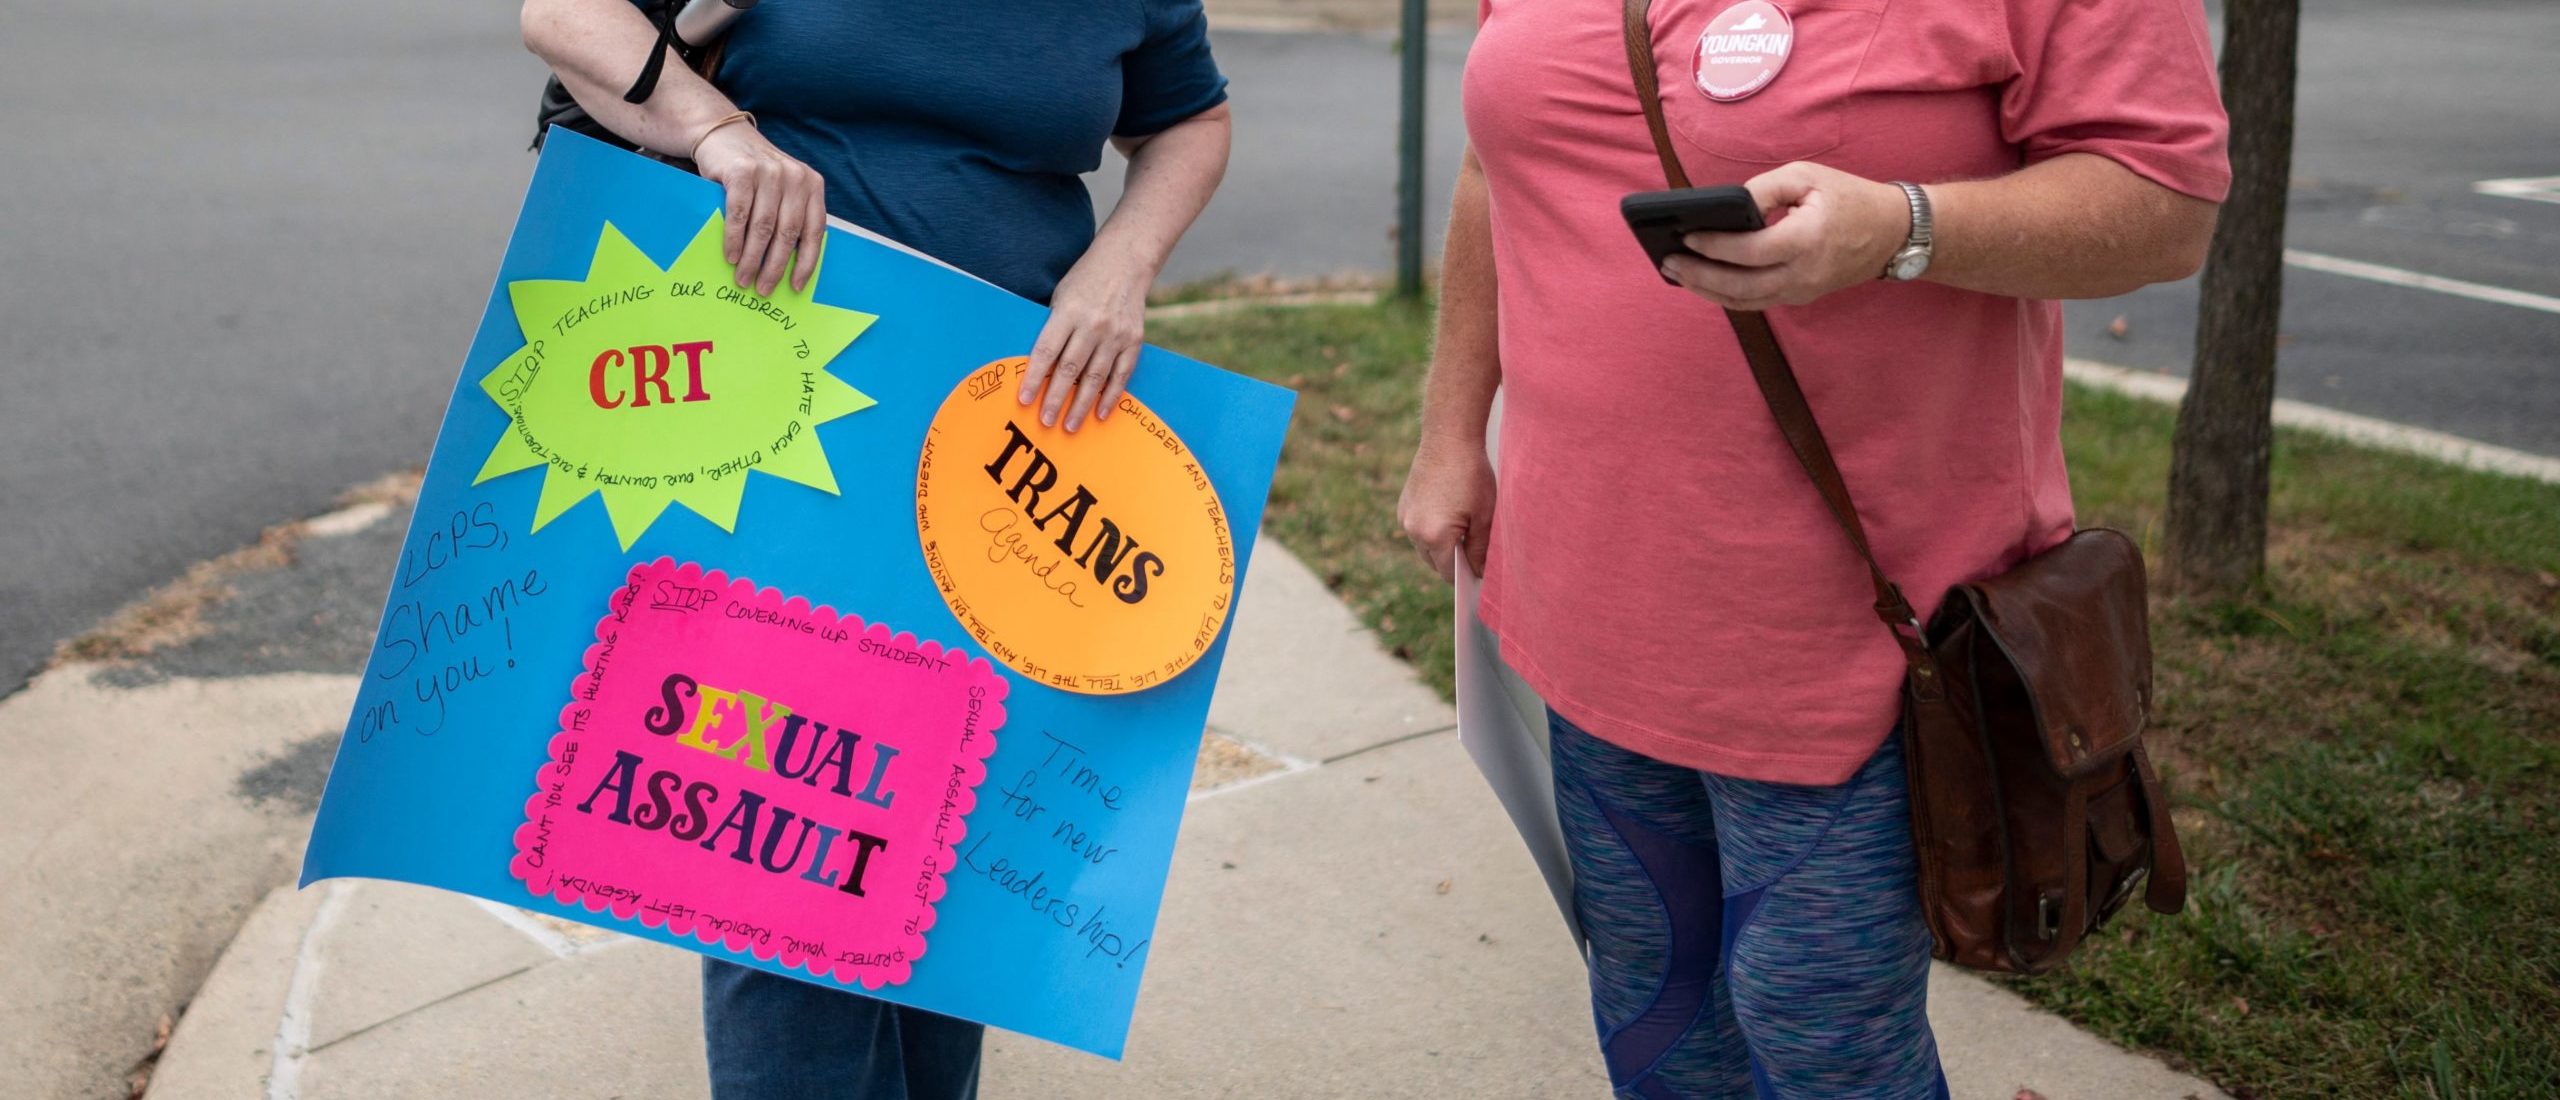 YOUNGKIN
GOVERNOR
STOP TEACHING OUR CHILDREN TO HATE EACH OTHER, OUR COUNTRY & OUR TRADITIONS!
CRT
STOP CHILDREN AND TEACHERS TO LIVE THE LIE, TELL THE LIE, AND TELL ON ANYONE WHO DOESN'T!
TRANS
Agenda
LCPS,
Shame
on you!
STOP COVERING UP STUDENT
SEXUAL ASSAULT JUST TO
PROTECT YOUR RADICAL LEFT AGENDA!
CAN'T YOU SEE IT'S HURTING KIDS!
SEXUAL
ASSAULT
Time
for new
Leadership!